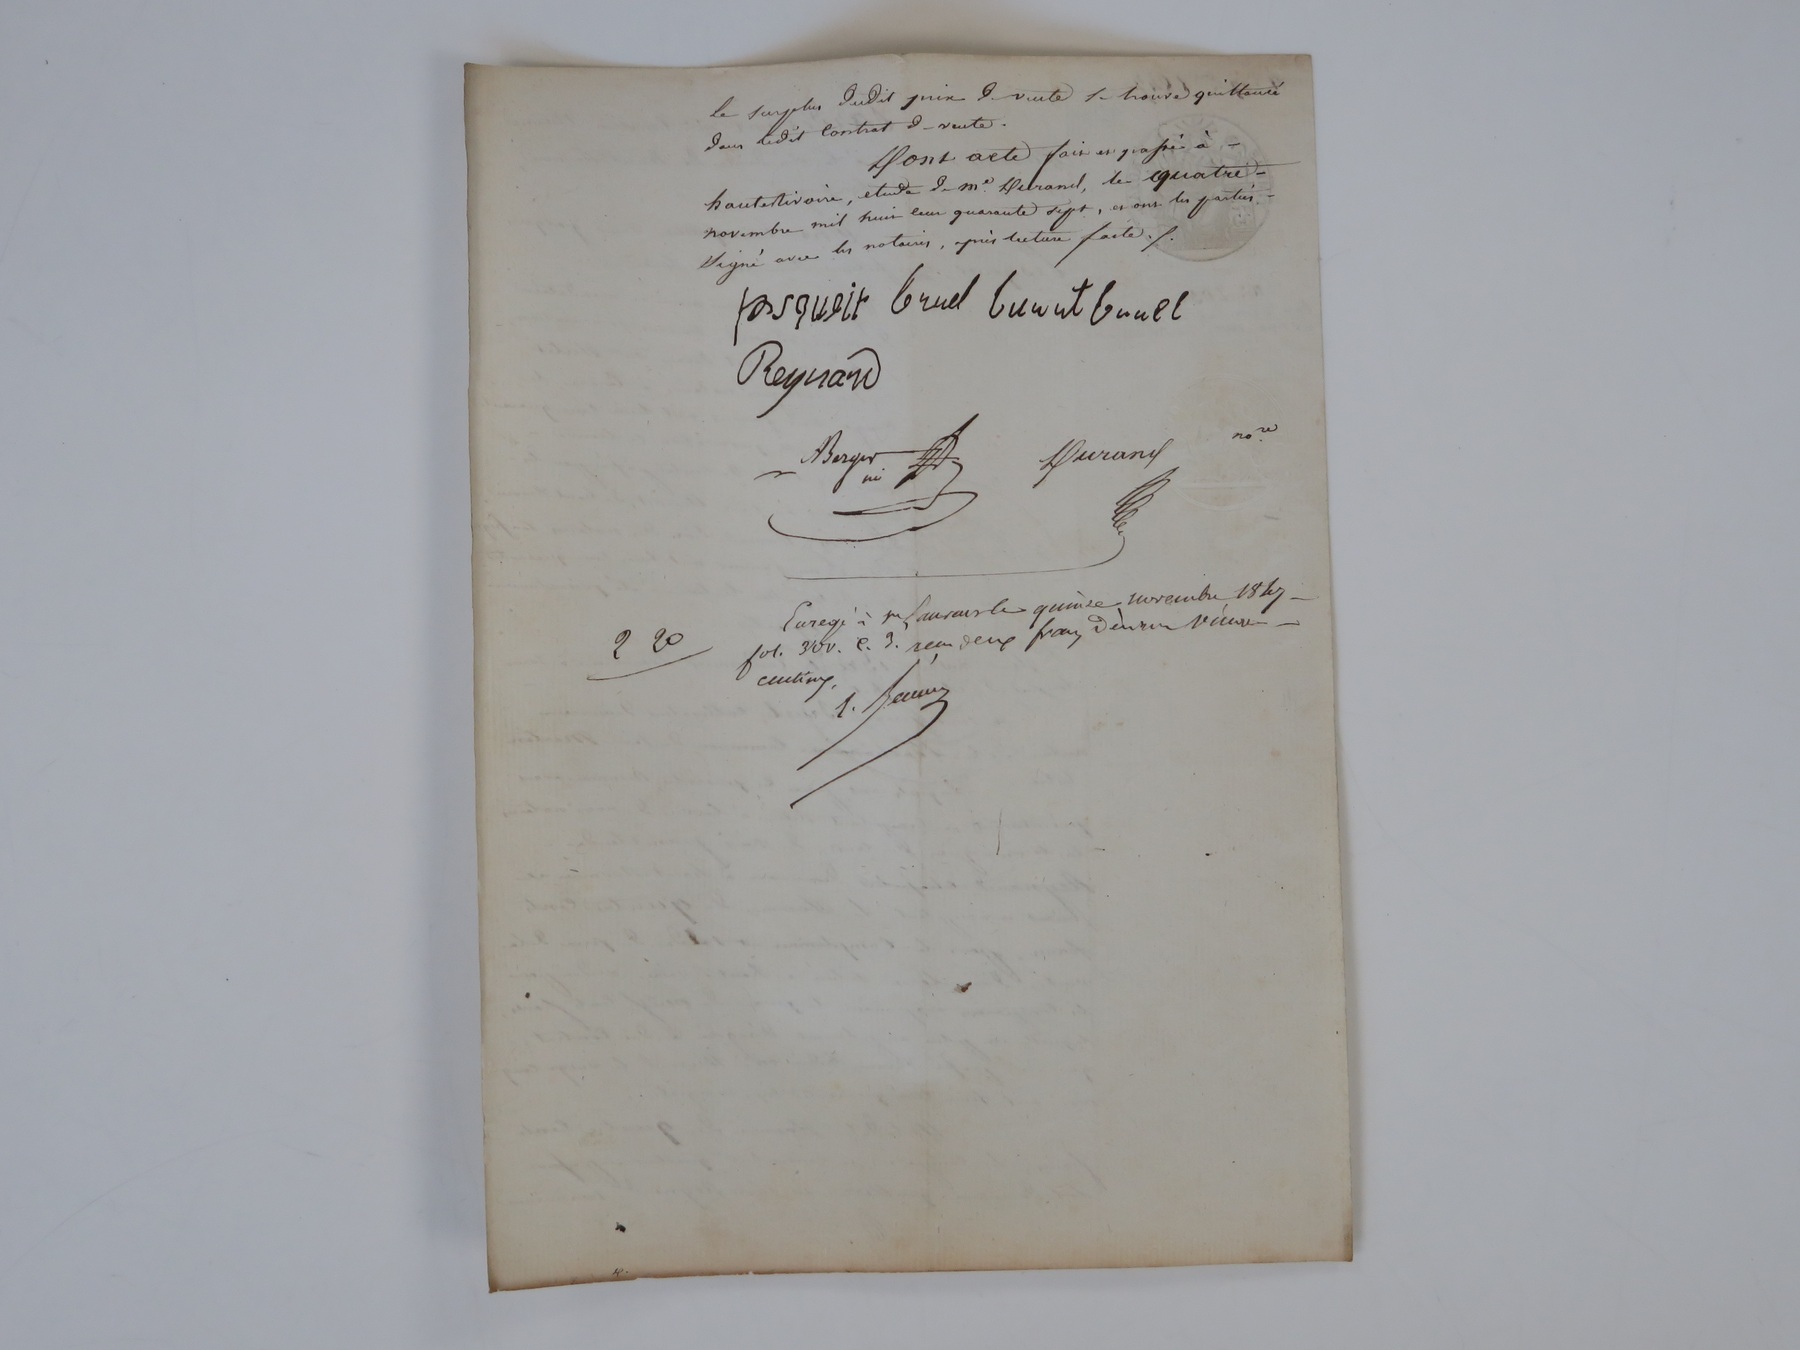 Le surplus dudit prix de vente se trouve quittancé
dans ledit contrat de vente.
Dont acte fait et passé à -
hauterivoire, etude de me. Durand, le quatre -
novembre mil huit cent quarante sept, et ont les parties -
Signé avec les notaires, après lecture faite.
Bruel
Reynard
Berger
Durand nore
Enregé à St Laurent le quinze novembre 1847 -
fol. v. c. 3. reçu deux francs vingt -
centimes.
2 20